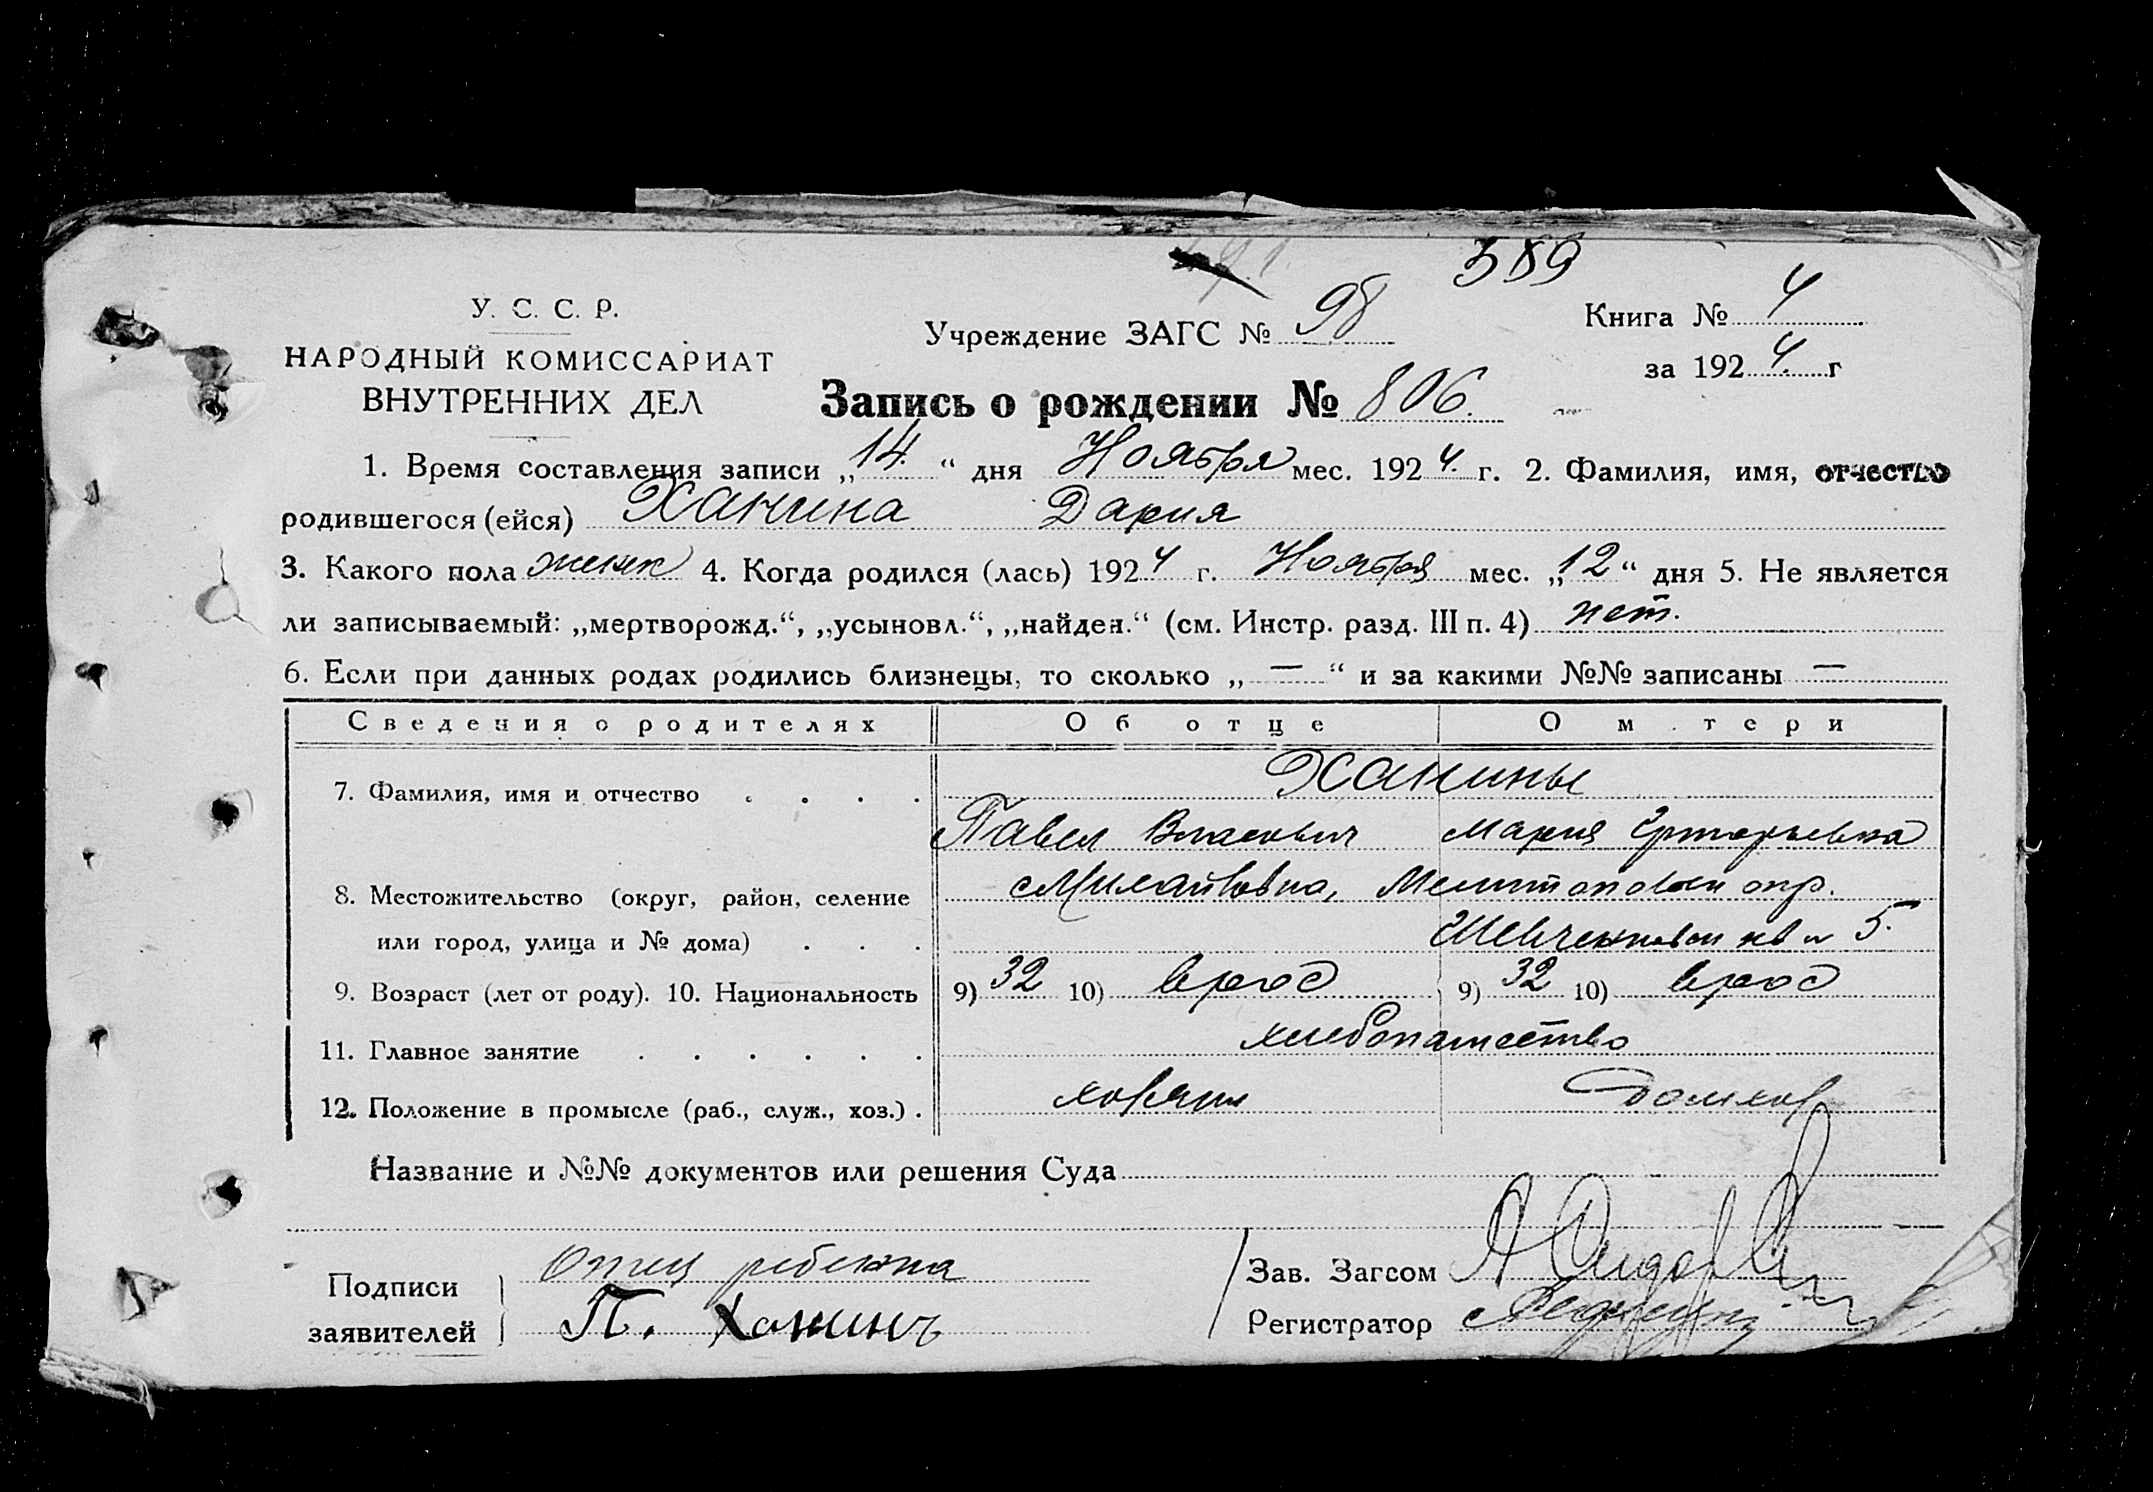 389
У. С. С. Р.
Учреждение ЗАГС № 98
Книга № 4
НАРОДНЫЙ КОМИССАРИАТ
за 1924. г
ВНУТРЕННИХ ДЕЛ
Запись о рождении № 806.
1. Время составления записи „14.“ дня Ноября мес. 1924. г. 2. Фамилия, имя, отчество
родившегося (ейся) Ханина Дария
3. Какого пола женск 4. Когда родился (лась) 1924 г. Ноября мес. „12“ дня 5. Не является
ли записываемый: „мертворожд.“, „усыновл.“, „найден.“ (см. Инстр. разд. III п. 4) нет.
6. Если при данных родах родились близнецы, то сколько „—“ и за какими №№ записаны —
Сведения о родителях Об отце О м тери
7. Фамилия, имя и отчество . . . . Ханины
Павел Власович Мария Григорьевна
8. Местожительство (округ, район, селение Михайловка, Мелитопольск окр.
или город, улица и № дома) . . . Шевченковск № 5.
9. Возраст (лет от роду). 10. Национальность 9) 32 10) 9) 32 10)
11. Главное занятие . . . . . . хлебопашество
12. Положение в промысле (раб., служ., хоз.) . хозяин домхоз
Название и №№ документов или решения Суда
Подписи заявителей
Отец ребенка
П. Ханинъ
Зав. Загсом
Регистратор